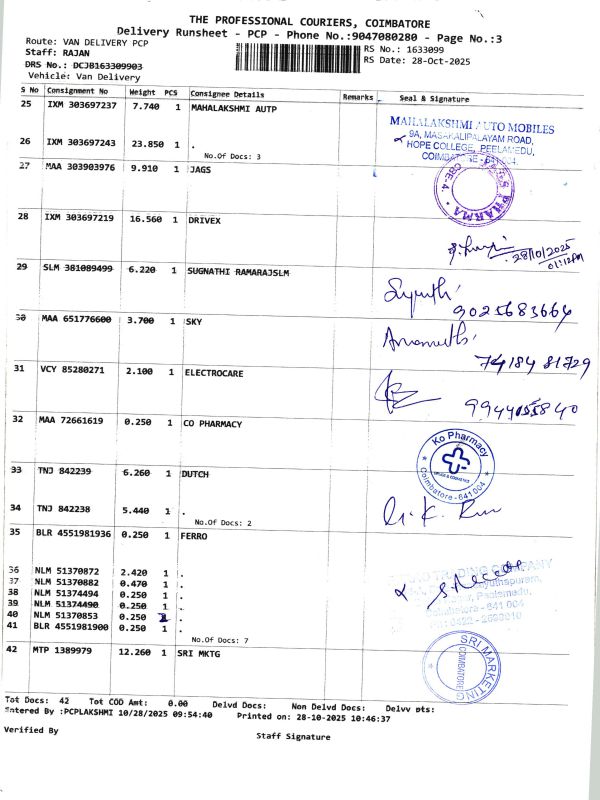 THE PROFESSIONAL COURIERS, COIMBATORE
Delivery Runsheet - PCP - Phone No.:9047080280 - Page No.:3
Route: VAN DELIVERY PCP
RS No.: 1633099
Staff: RAJAN
RS Date: 28-Oct-2025
DRS No.: DCJB163309903
Vehicle: Van Delivery
S No Consignment No Weight PCS Consignee Details Remarks Seal & Signature
25 IXM 303697237 7.740 1 MAHALAKSHMI AUTP
MAHALAKSHMI AUTO MOBILES
9A, MASAKALIPALAYAM ROAD,
HOPE COLLEGE, PEELAMEDU,
COIMBATORE - 641 004.
26 IXM 303697243 23.850 1 .
No.Of Docs: 3
27 MAA 303903976 9.910 1 JAGS
PHARMA
CBE-4.
28 IXM 303697219 16.560 1 DRIVEX
28/10/2025
01:12PM
29 SLM 381089499 6.220 1 SUGNATHI RAMARAJSLM
9025683664
30 MAA 651776600 3.700 1 SKY
74184 81729
31 VCY 85280271 2.100 1 ELECTROCARE
32 MAA 72661619 0.250 1 CO PHARMACY
Ko Pharmacy
Coimbatore - 641 004
33 TNJ 842239 6.260 1 DUTCH
34 TNJ 842238 5.440 1 .
No.Of Docs: 2
35 BLR 4551981936 0.250 1 FERRO
TRADING COMPANY
36 NLM 51370872 2.420 1 .
37 NLM 51370882 0.470 1 .
38 NLM 51374494 0.250 1 .
39 NLM 51374490 0.250 1 .
40 NLM 51370853 0.250 1 .
41 BLR 4551981900 0.250 1 .
No.Of Docs: 7
42 MTP 1389979 12.260 1 SRI MKTG
SRI MARKETING
COIMBATORE
Tot Docs: 42 Tot COD Amt: 0.00 Delvd Docs: Non Delvd Docs: Delvv pts:
Entered By :PCPLAKSHMI 10/28/2025 09:54:40 Printed on: 28-10-2025 10:46:37
Verified By
Staff Signature